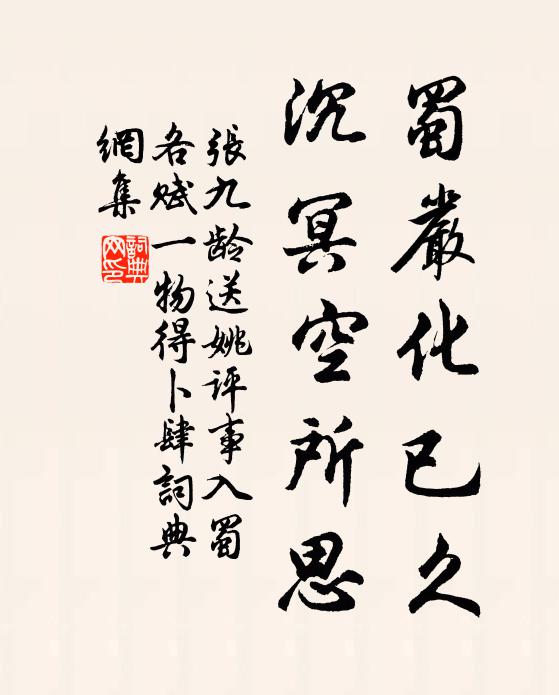 蜀嚴化已久
沉冥空所思
張九齡送姚評事入蜀
各賦一物得卜肆詞典
網集
詞典
网印